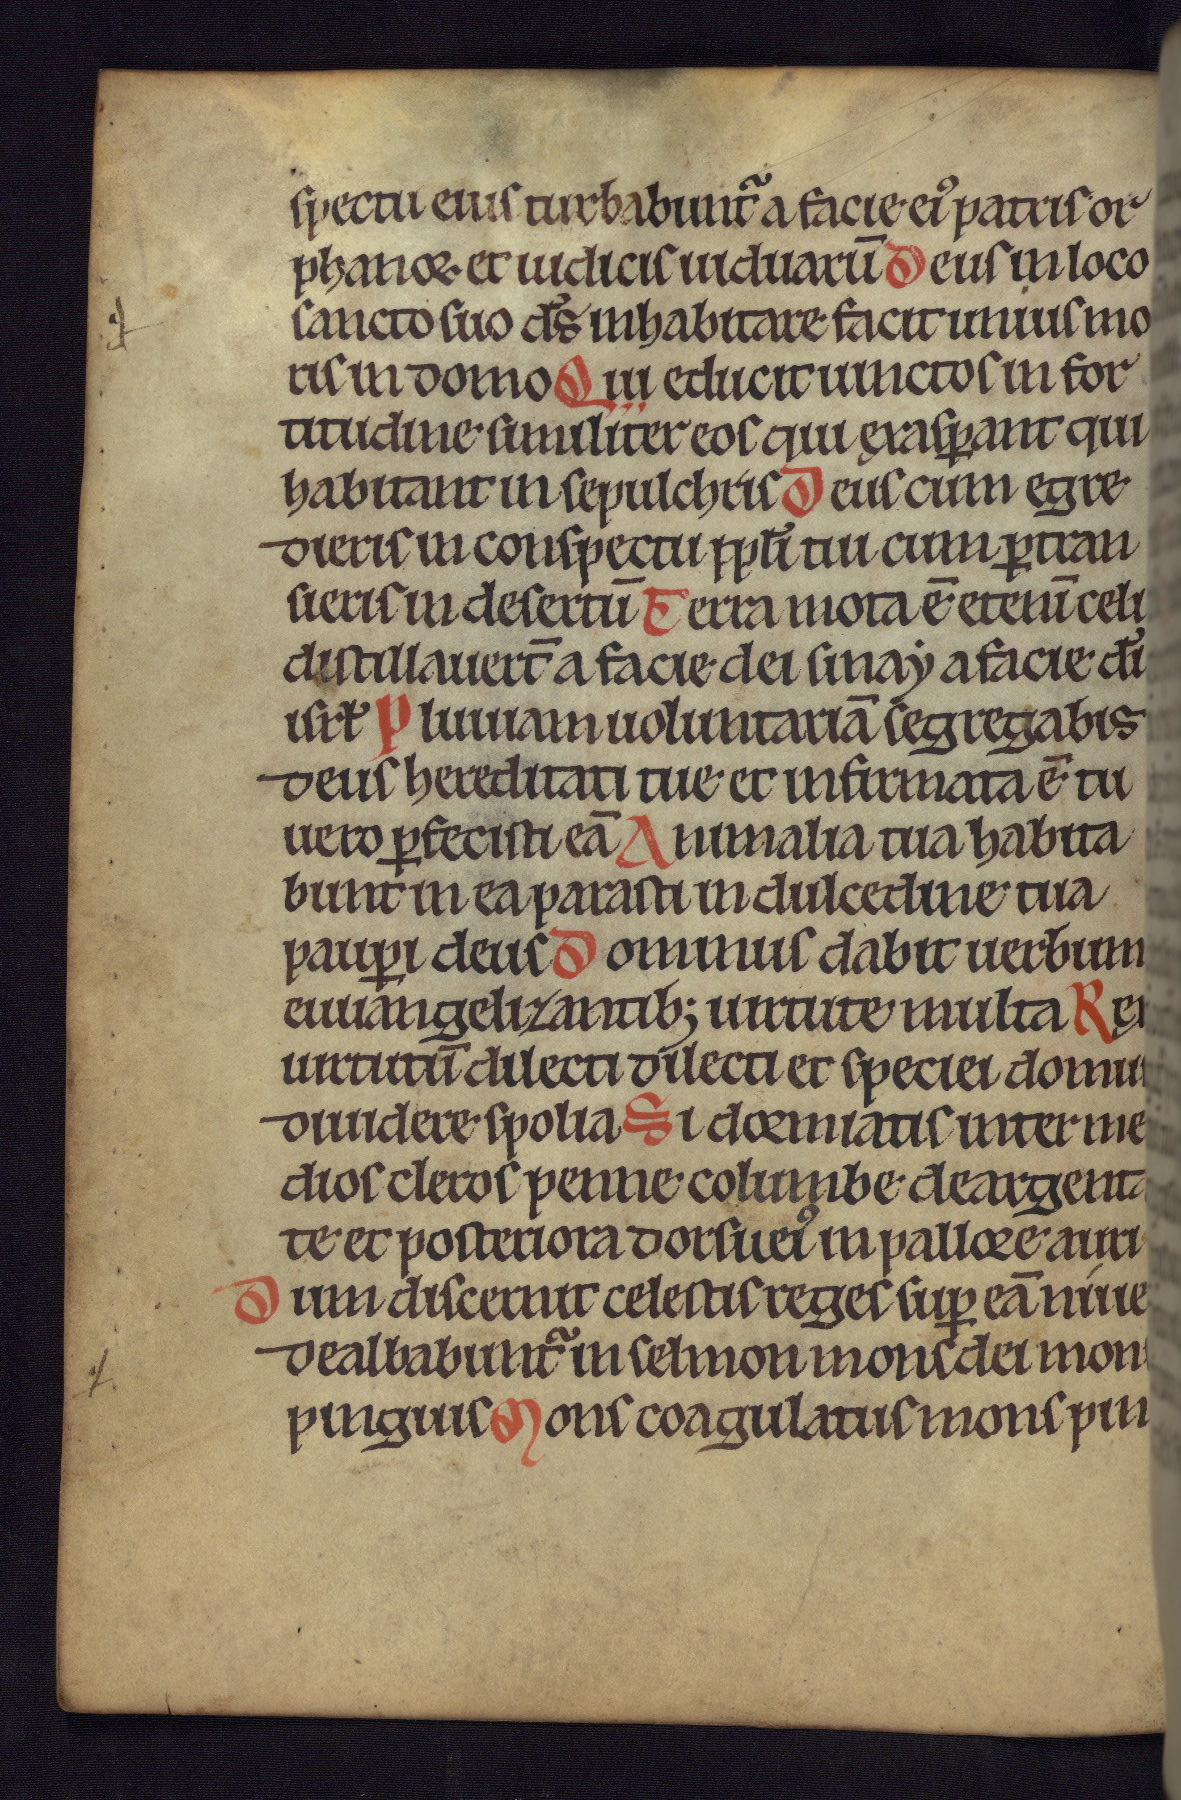 spectu eius turbabunt᷑ a facie eiꝰ patris or
phanoꝝ et iudicis uiduarū Deus in loco
sancto suo ds̄ inhabitare facit unius mo
ris in domo Qui educit uinctos in for
titudine similiter eos qui exasꝑant qui
habitant in sepulchris Deus cum egre
dieris in conspectu ppl̄i tui cum ꝑtran
sieris in desertū Terra mota ē etenī celi
distillauert̄ a facie dei sinaẏ a facie dī
isrl̄ Pluuiam uoluntariā segregabis
deus hereditati tue et infirmata ē tu
uero ꝑfecisti eā Animalia tua habita
bunt in ea parasti in dulcedine tua
pauꝑi deus Dominus dabit uerbum
euuangelizantib; uirtute multa Rex
uirtutū dilecti dilecti et speciei domus
diuidere spolia Si dormiatis inter me
dios cleros penne columbe deargenta
te et posteriora dorsi eiꝰ in pallore auri
Dum discernit celestis reges suꝑ eā niue
dealbabunt᷑ in selmon mons dei mons
pinguis Mons coagulatus mons pin